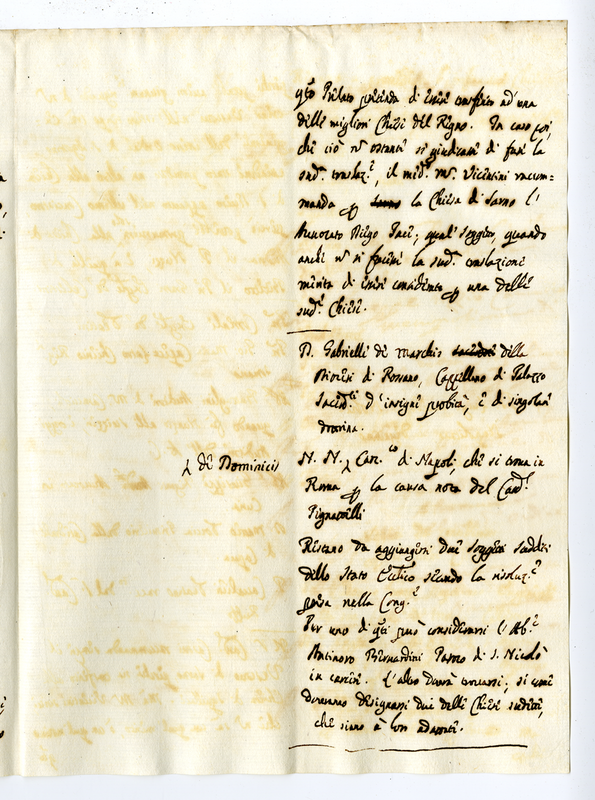 q̃to Prelato pretenda di esser trasferito ad una
delle migliori Chiese del Regno. In caso poi,
che ciò nõ ostante si giudicasse di fare la
sud.ª traslaz.e, il med.º M.r Vicentini raccom=
manda p la Chiesa di Sarno l'
Avvocato Diego Paci; qual soggetto, quando
anche nõ si facesse la sud.ª traslazione
merita di essere considerato p una delle
sud.e Chiese.
D. Gabrielle de Marchis della
Diocesi di Rossano, Cappellano di Palazzo
Sacerd.te d'insigne probità, e di singolar
dottrina.
de Dominicis
N. N. Can.co di Napoli, che si trova in
Roma p la causa nota del Card.l
Pignattelli
Restano da aggiungersi due soggetti sudditi
dello Stato Eccl.ico secondo la risoluz.e
presa nella Cong.e
Per uno di q̃ti può considerarsi l'Ab.e
Antinoro Bernardini Parroco di S. Nicolò
in carcere. L'altro dovrà trovarsi; si come
dovranno designarsi due delle Chiese sudette,
che siano à loro adattate.